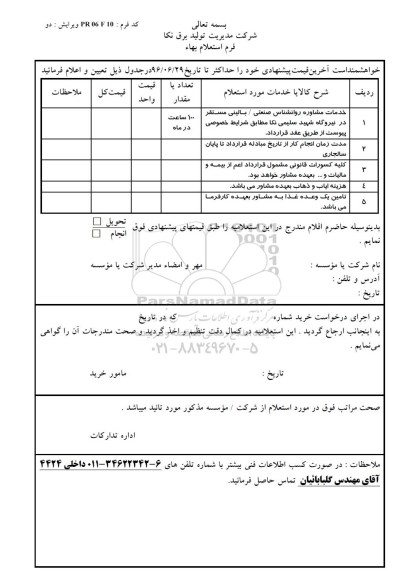 بسمه تعالی
کد فرم : PR 06 F 10 ویرایش : دو
شرکت مدیریت تولید برق نکا
فرم استعلام بهاء
خواهشمنداست آخرین قیمت پیشنهادی خود را حداکثر تا تاریخ ۹۶/۰۶/۲۹ درجدول ذیل تعیین و اعلام فرمائید
ردیف
شرح کالایا خدمات مورد استعلام
تعداد یا مقدار
قیمت واحد
قیمت کل
ملاحظات
۱
خدمات مشاوره روانشناس صنعتی / بالینی مستقر
در نیروگاه شهید سلیمی نکا مطابق شرایط خصوصی
پیوست از طریق عقد قرارداد.
۱۰۰ ساعت
در ماه
۲
مدت زمان انجام کار از تاریخ مبادله قرارداد تا پایان
سالجاری
۳
کلیه کسورات قانونی مشمول قرارداد اعم از بیمه و
مالیات و ... بعهده مشاور خواهد بود.
٤
هزینه ایاب و ذهاب بعهده مشاور می باشد.
۵
تامین یک وعده غذا به مشاور بعهده کارفرما
می باشد.
بدینوسیله حاضرم اقلام مندرج در این استعلامیه را طبق قیمتهای پیشنهادی فوق
تحویل
انجام
نمایم .
نام شرکت یا مؤسسه :
مهر و امضاء مدیر شرکت یا مؤسسه
آدرس و تلفن :
تاریخ :
ParsNamadData
در اجرای درخواست خرید شماره
که در تاریخ
به اینجانب ارجاع گردید . این استعلامیه در کمال دقت تنظیم و اخذ گردید و صحت مندرجات آن را گواهی
می‌نمایم .
۰۲۱-۸۸۳۴۹۶۷۰-۵
تاریخ :
مامور خرید
صحت مراتب فوق در مورد استعلام از شرکت / مؤسسه مذکور مورد تائید میباشد .
اداره تدارکات
ملاحظات : در صورت کسب اطلاعات فنی بیشتر با شماره تلفن های ۶-۳۴۶۲۲۳۴۲-۰۱۱ داخلی ۴۴۲۴
آقای مهندس گلبابائیان تماس حاصل فرمائید.